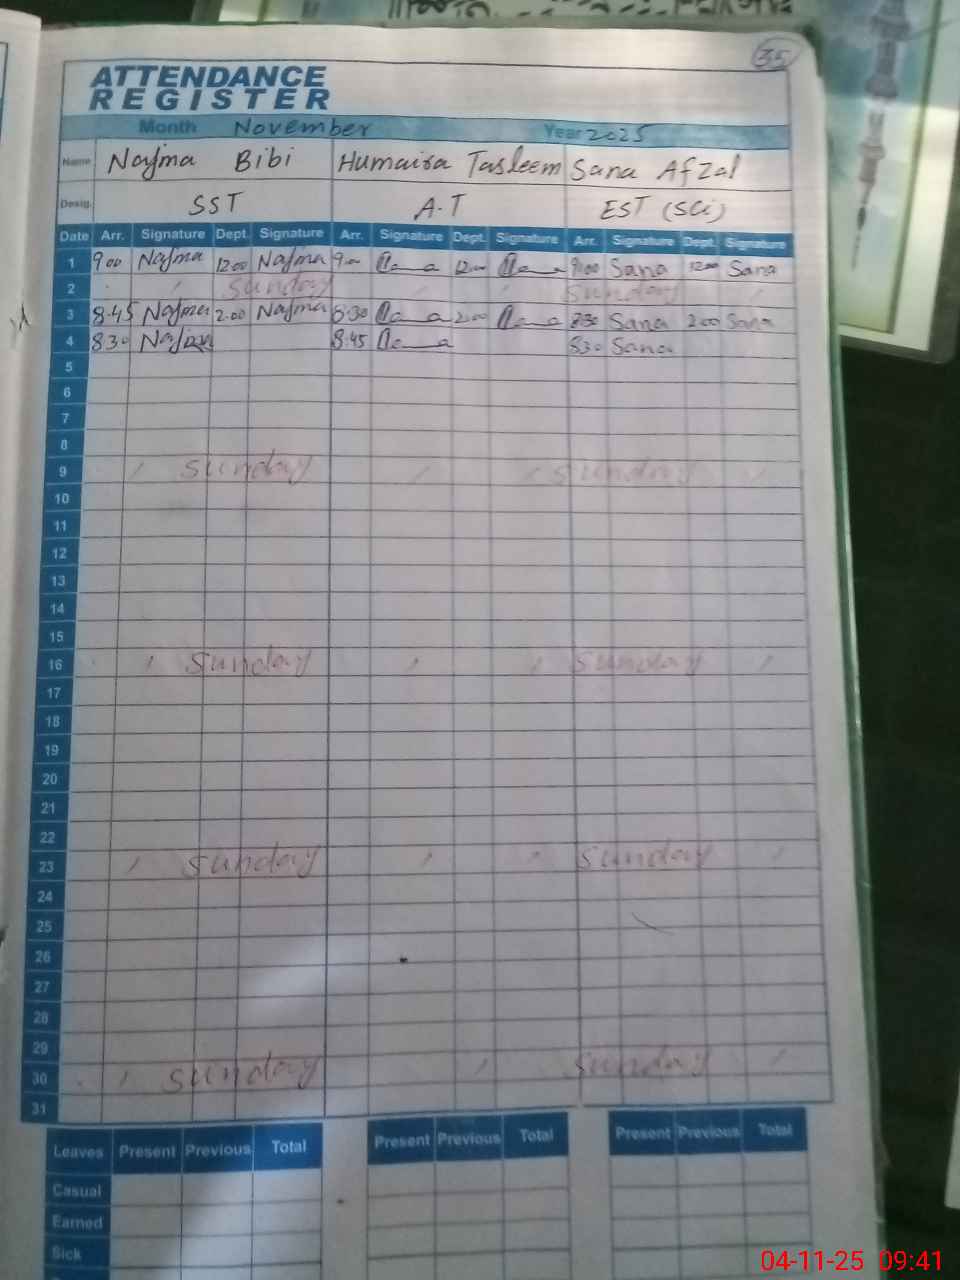 35
ATTENDANCE
REGISTER
Month November Year 2025
Name Najma Bibi Humaira Tasleem Sana Afzal
Desig. SST A.T EST (Sci)
Date Arr. Signature Dept. Signature Arr. Signature Dept. Signature Arr. Signature Dept. Signature
1 9 00 Najma 12 00 Najma 9 00 12 00 9 00 Sana 12 00 Sana
2 Sunday Sunday
3 8.45 Najma 2.00 Najma 8.30 2.00 Sana 2.00 Sana
4 8 30 Najma 8.45 8 30 Sana
5
6
7
8
9 Sunday Sunday
10
11
12
13
14
15
16 Sunday Sunday
17
18
19
20
21
22
23 Sunday Sunday
24
25
26
27
28
29
30 Sunday Sunday
31
Leaves Present Previous Total Present Previous Total Present Previous Total
Casual
Earned
Sick
04-11-25 09:41